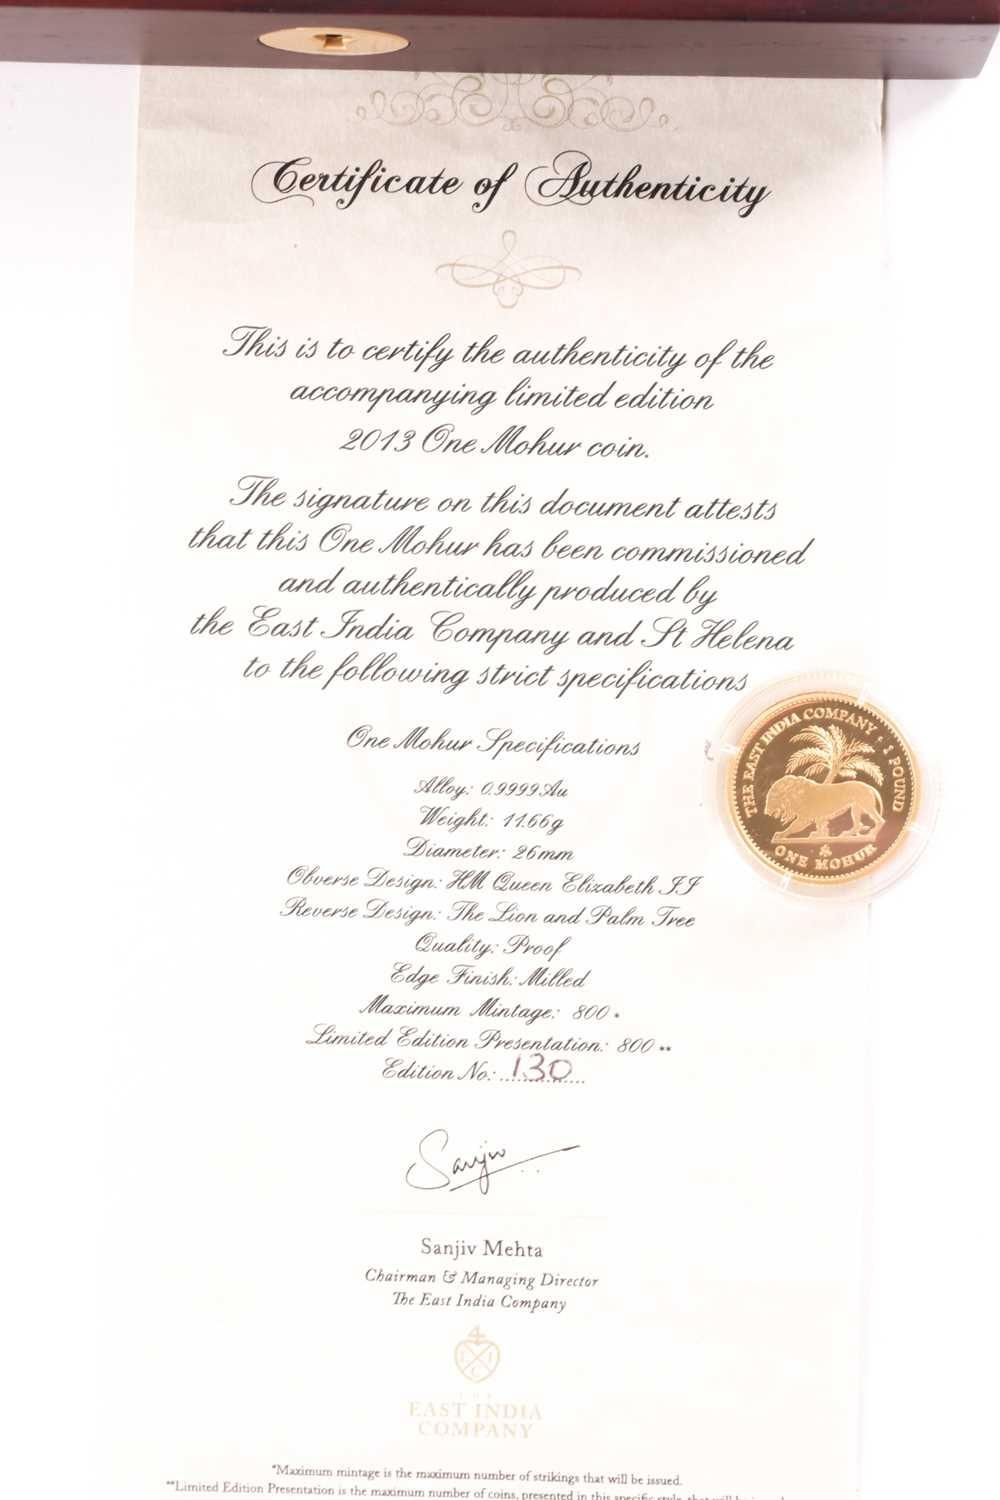 Certificate of Authenticity
This is to certify the authenticity of the
accompanying limited edition
2013 One Mohur coin.
The signature on this document attests
that this One Mohur has been commissioned
and authentically produced by
the East India Company and St Helena
to the following strict specifications
One Mohur Specifications
Alloy: 0.9999 Au
Weight: 11.66g
Diameter: 26mm
Obverse Design: HM Queen Elizabeth II
Reverse Design: The Lion and Palm Tree
Quality: Proof
Edge Finish: Milled
Maximum Mintage: 800 *
Limited Edition Presentation: 800 **
Edition No: 130
THE EAST INDIA COMPANY · 1 POUND
ONE MOHUR
Sanjiv
Sanjiv Mehta
Chairman & Managing Director
The East India Company
4
E I C
THE
EAST INDIA
COMPANY
*Maximum mintage is the maximum number of strikings that will be issued.
**Limited Edition Presentation is the maximum number of coins, presented in this specific style, that will be